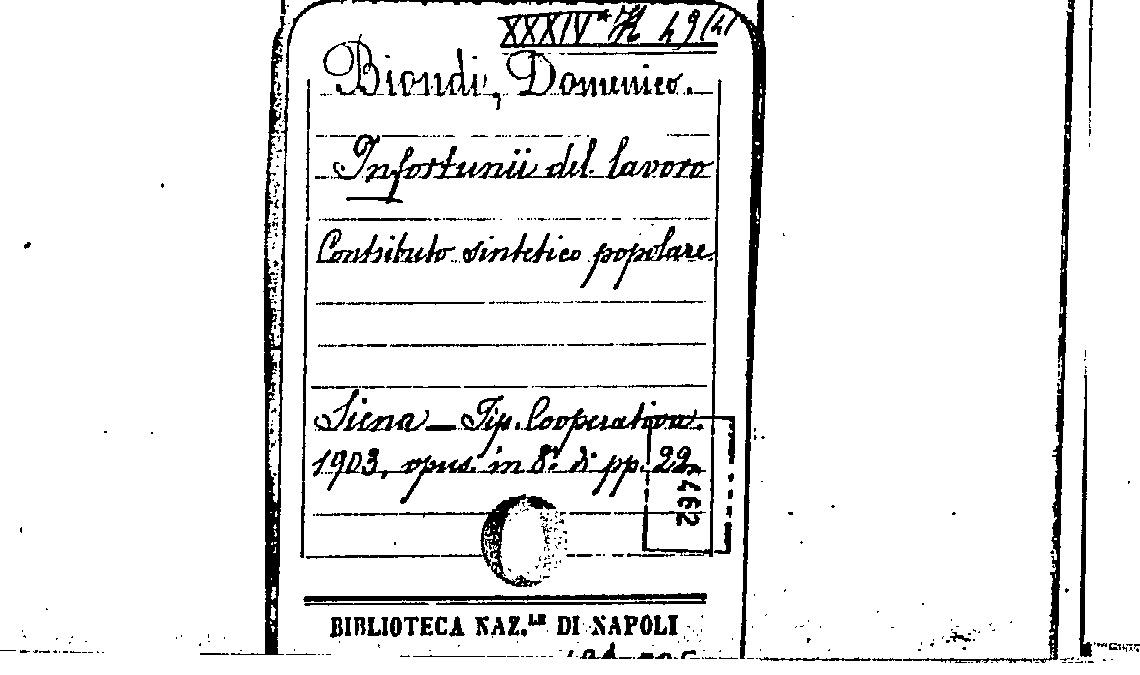 XXXIV* A 49 (21
Biondi, Domenico.
Infortunii del lavoro
Contributo sintetico popolare
Siena – Tip. Cooperativa.
1903, opus. in 8° di pp. 22.
4462
BIBLIOTECA NAZ.LE DI NAPOLI